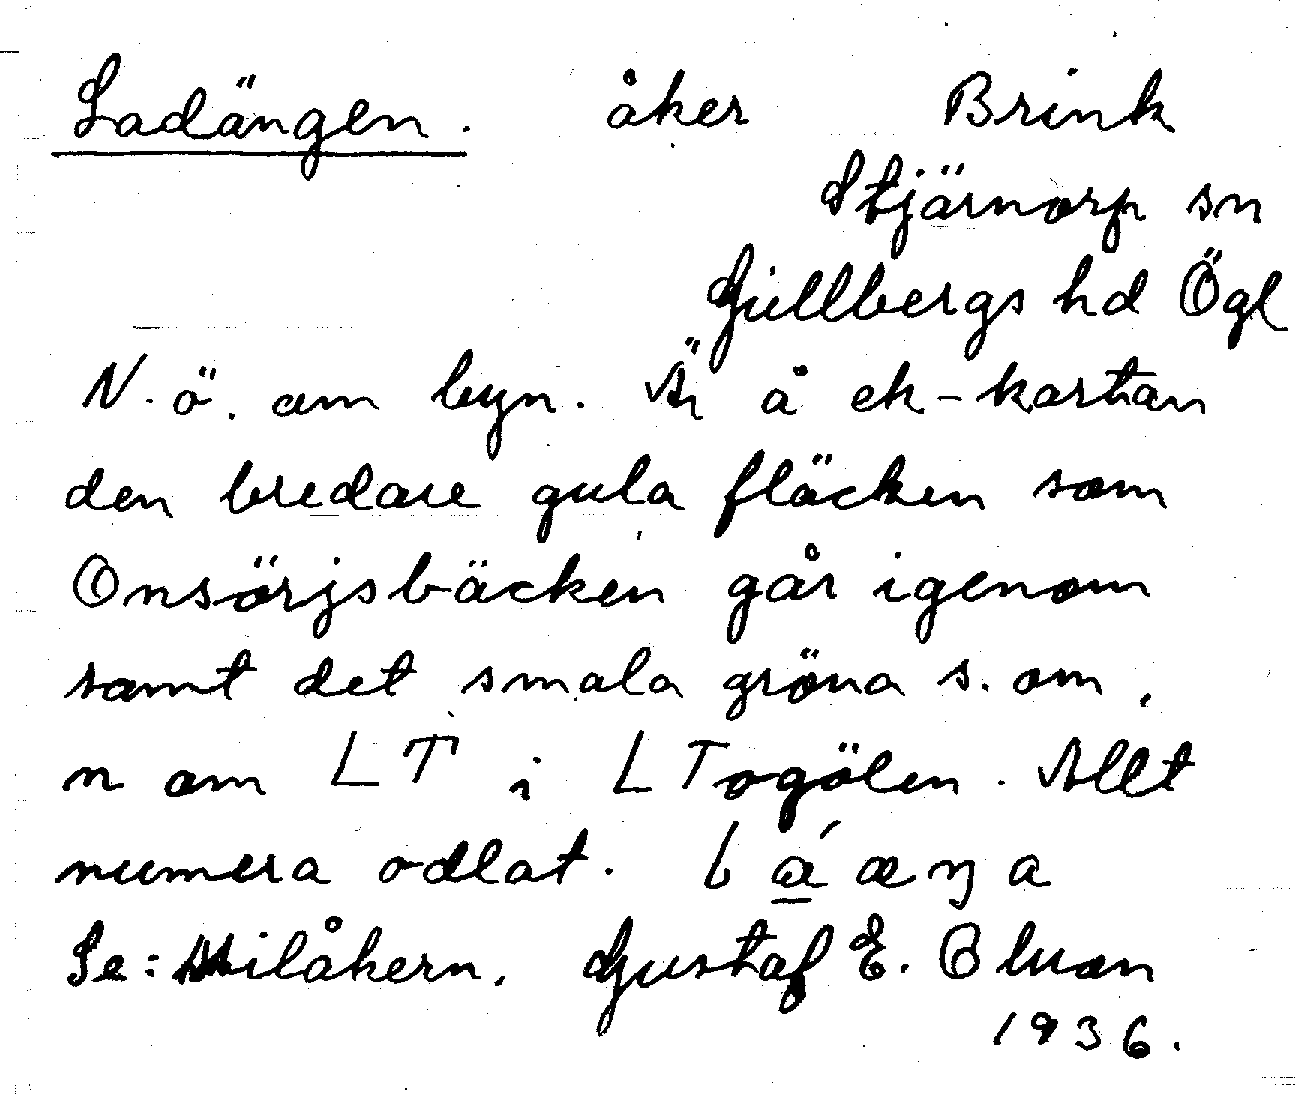 Ladängen. åker Brink
Stjärnorp sn
Gullbergs hd Ögl
N.ö. om byn. Är å ek-kartan
den bredare gula fläcken som
Onsörjsbäcken går igenom
samt det smala gröna s. om,
n om LT i LTorgölen. Allt
numera odlat.
Se: Milåkern. Gustaf E. Bluon
1936.